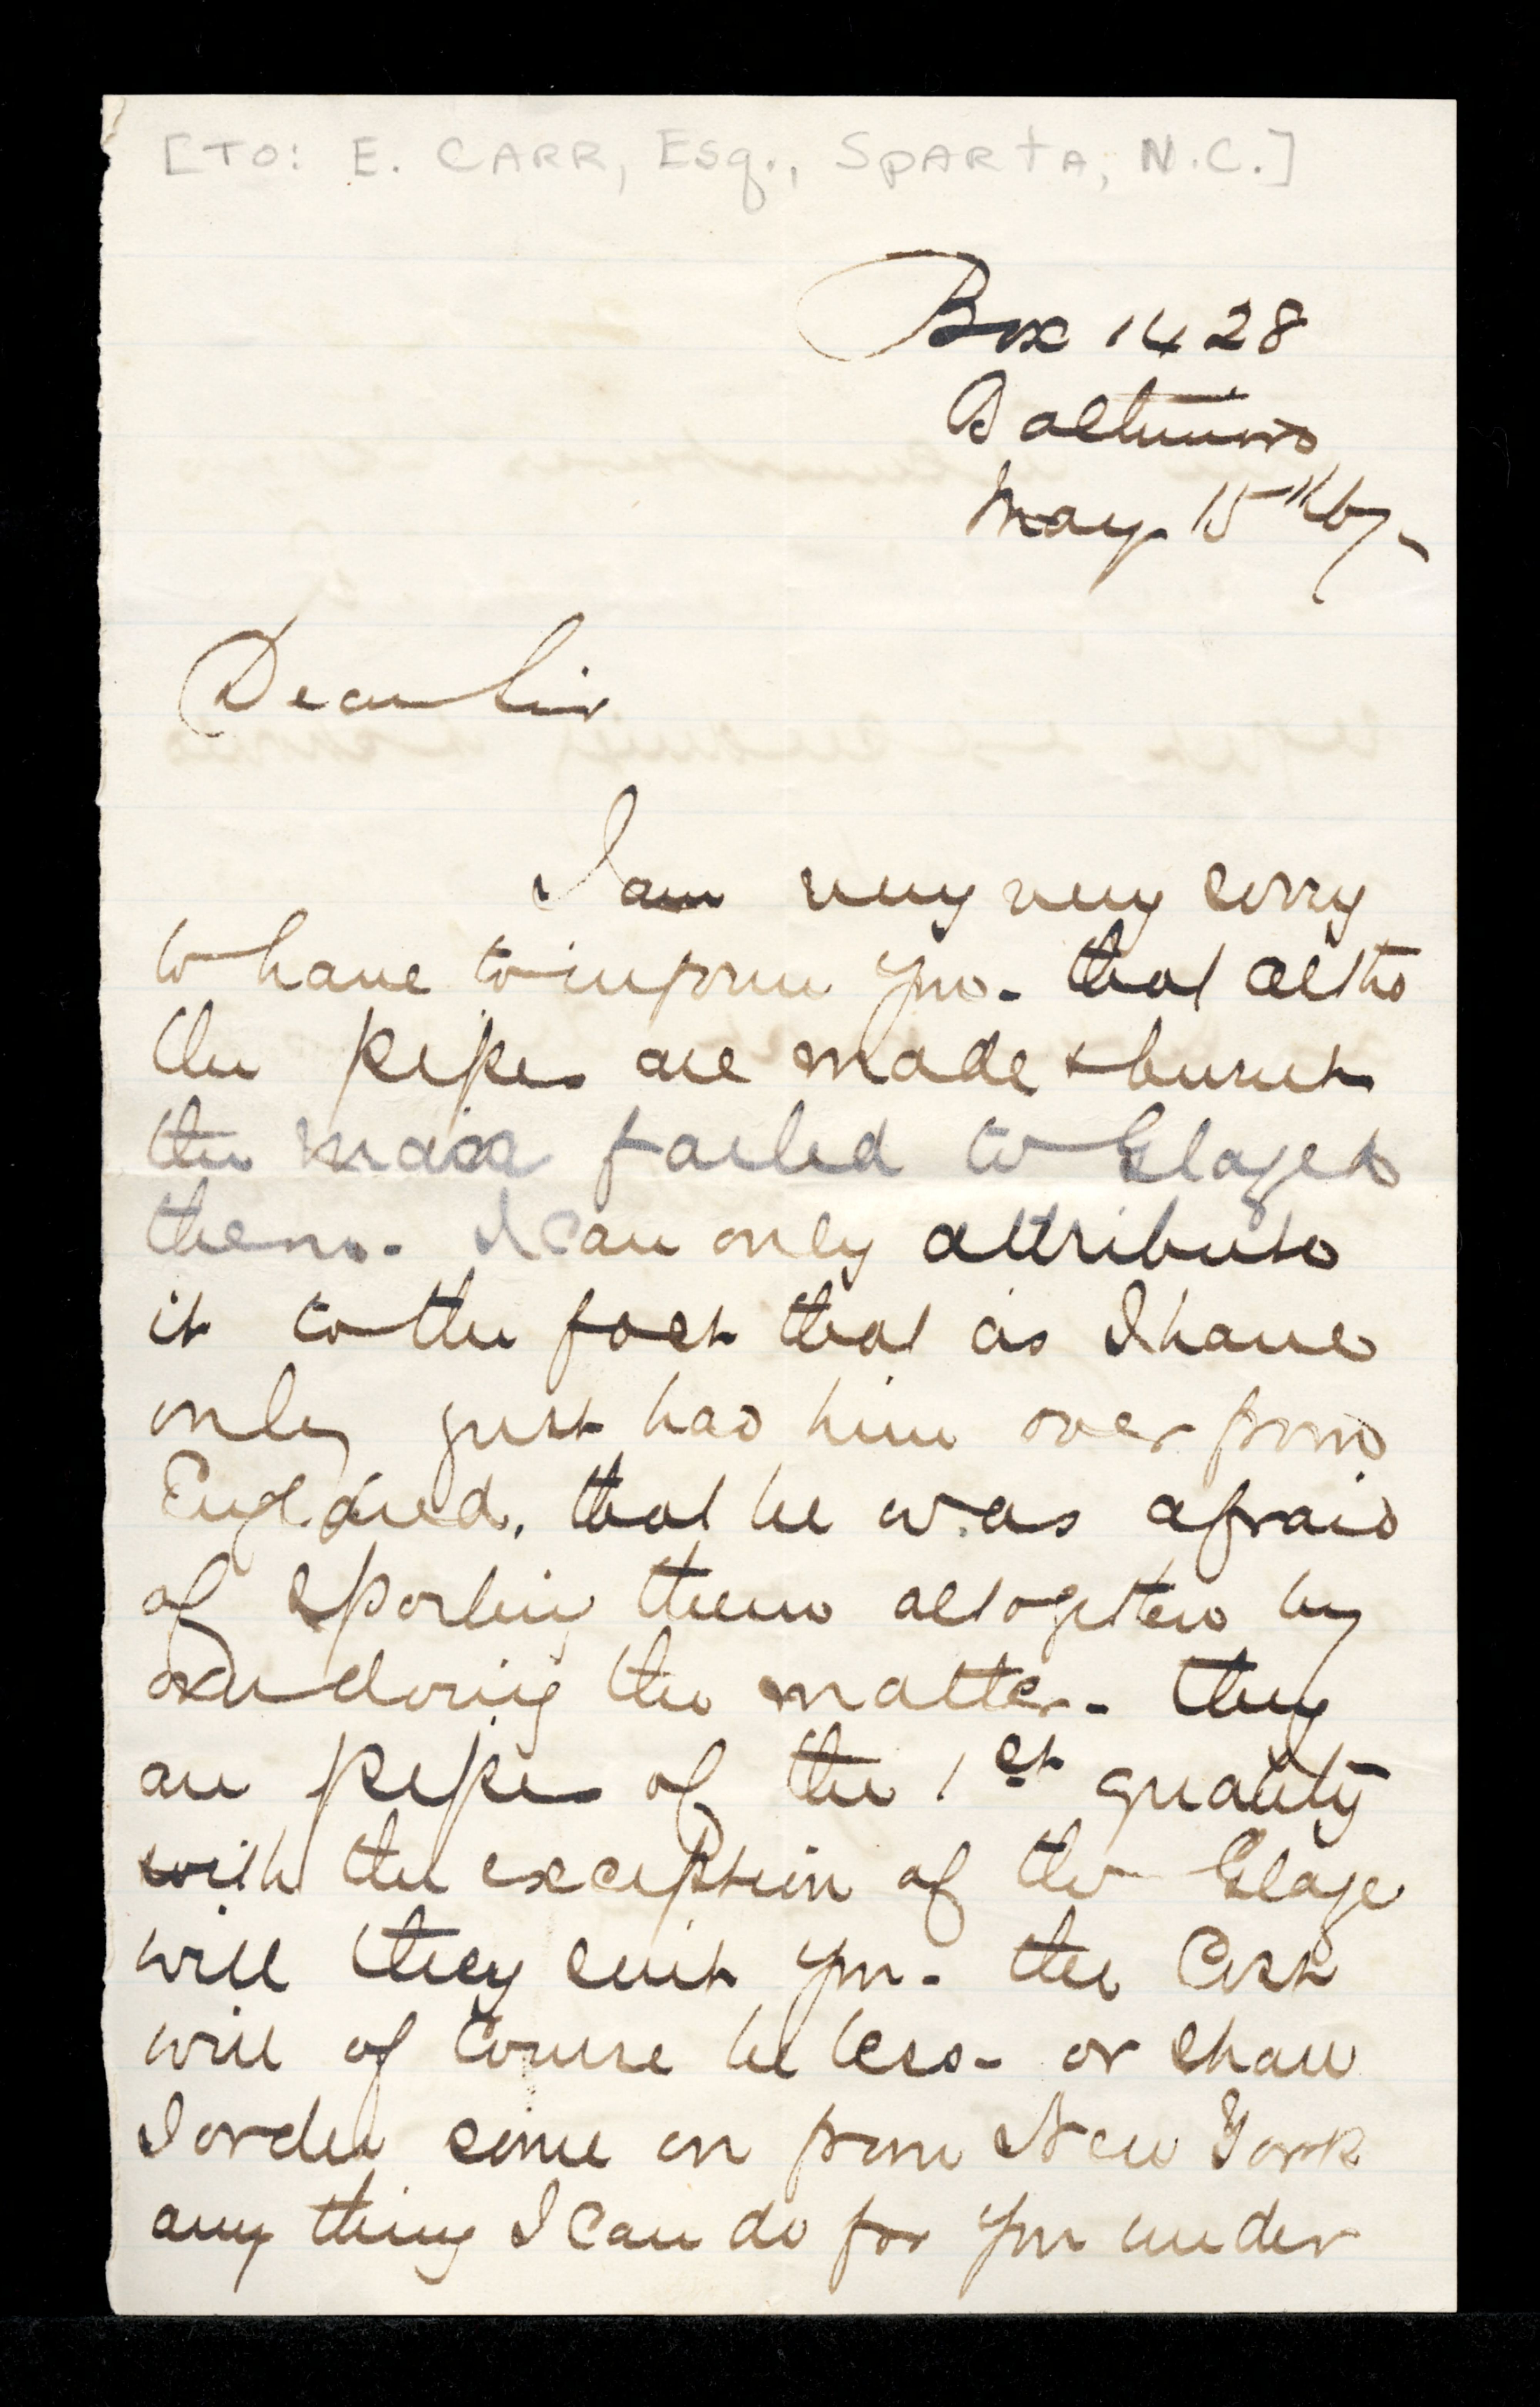 [TO: E. CARR, Esq., SPARTA, N.C.]
Box 1428
Baltimore
May 15th 67
Dear Sir
I am very very sorry
to have to inform you - that altho
the pipes are made & burnt
the man failed to Glaze
them - I can only attribute
it to the fact that as I have
only just had him over from
England, that he was afraid
of spoiling them altogether by
over doing the matter - they
are pipes of the 1st quality
with the exception of the Glaze
will they suit you - the Cost
will of Course be less - or shall
I order some on from New York
any thing I can do for you under